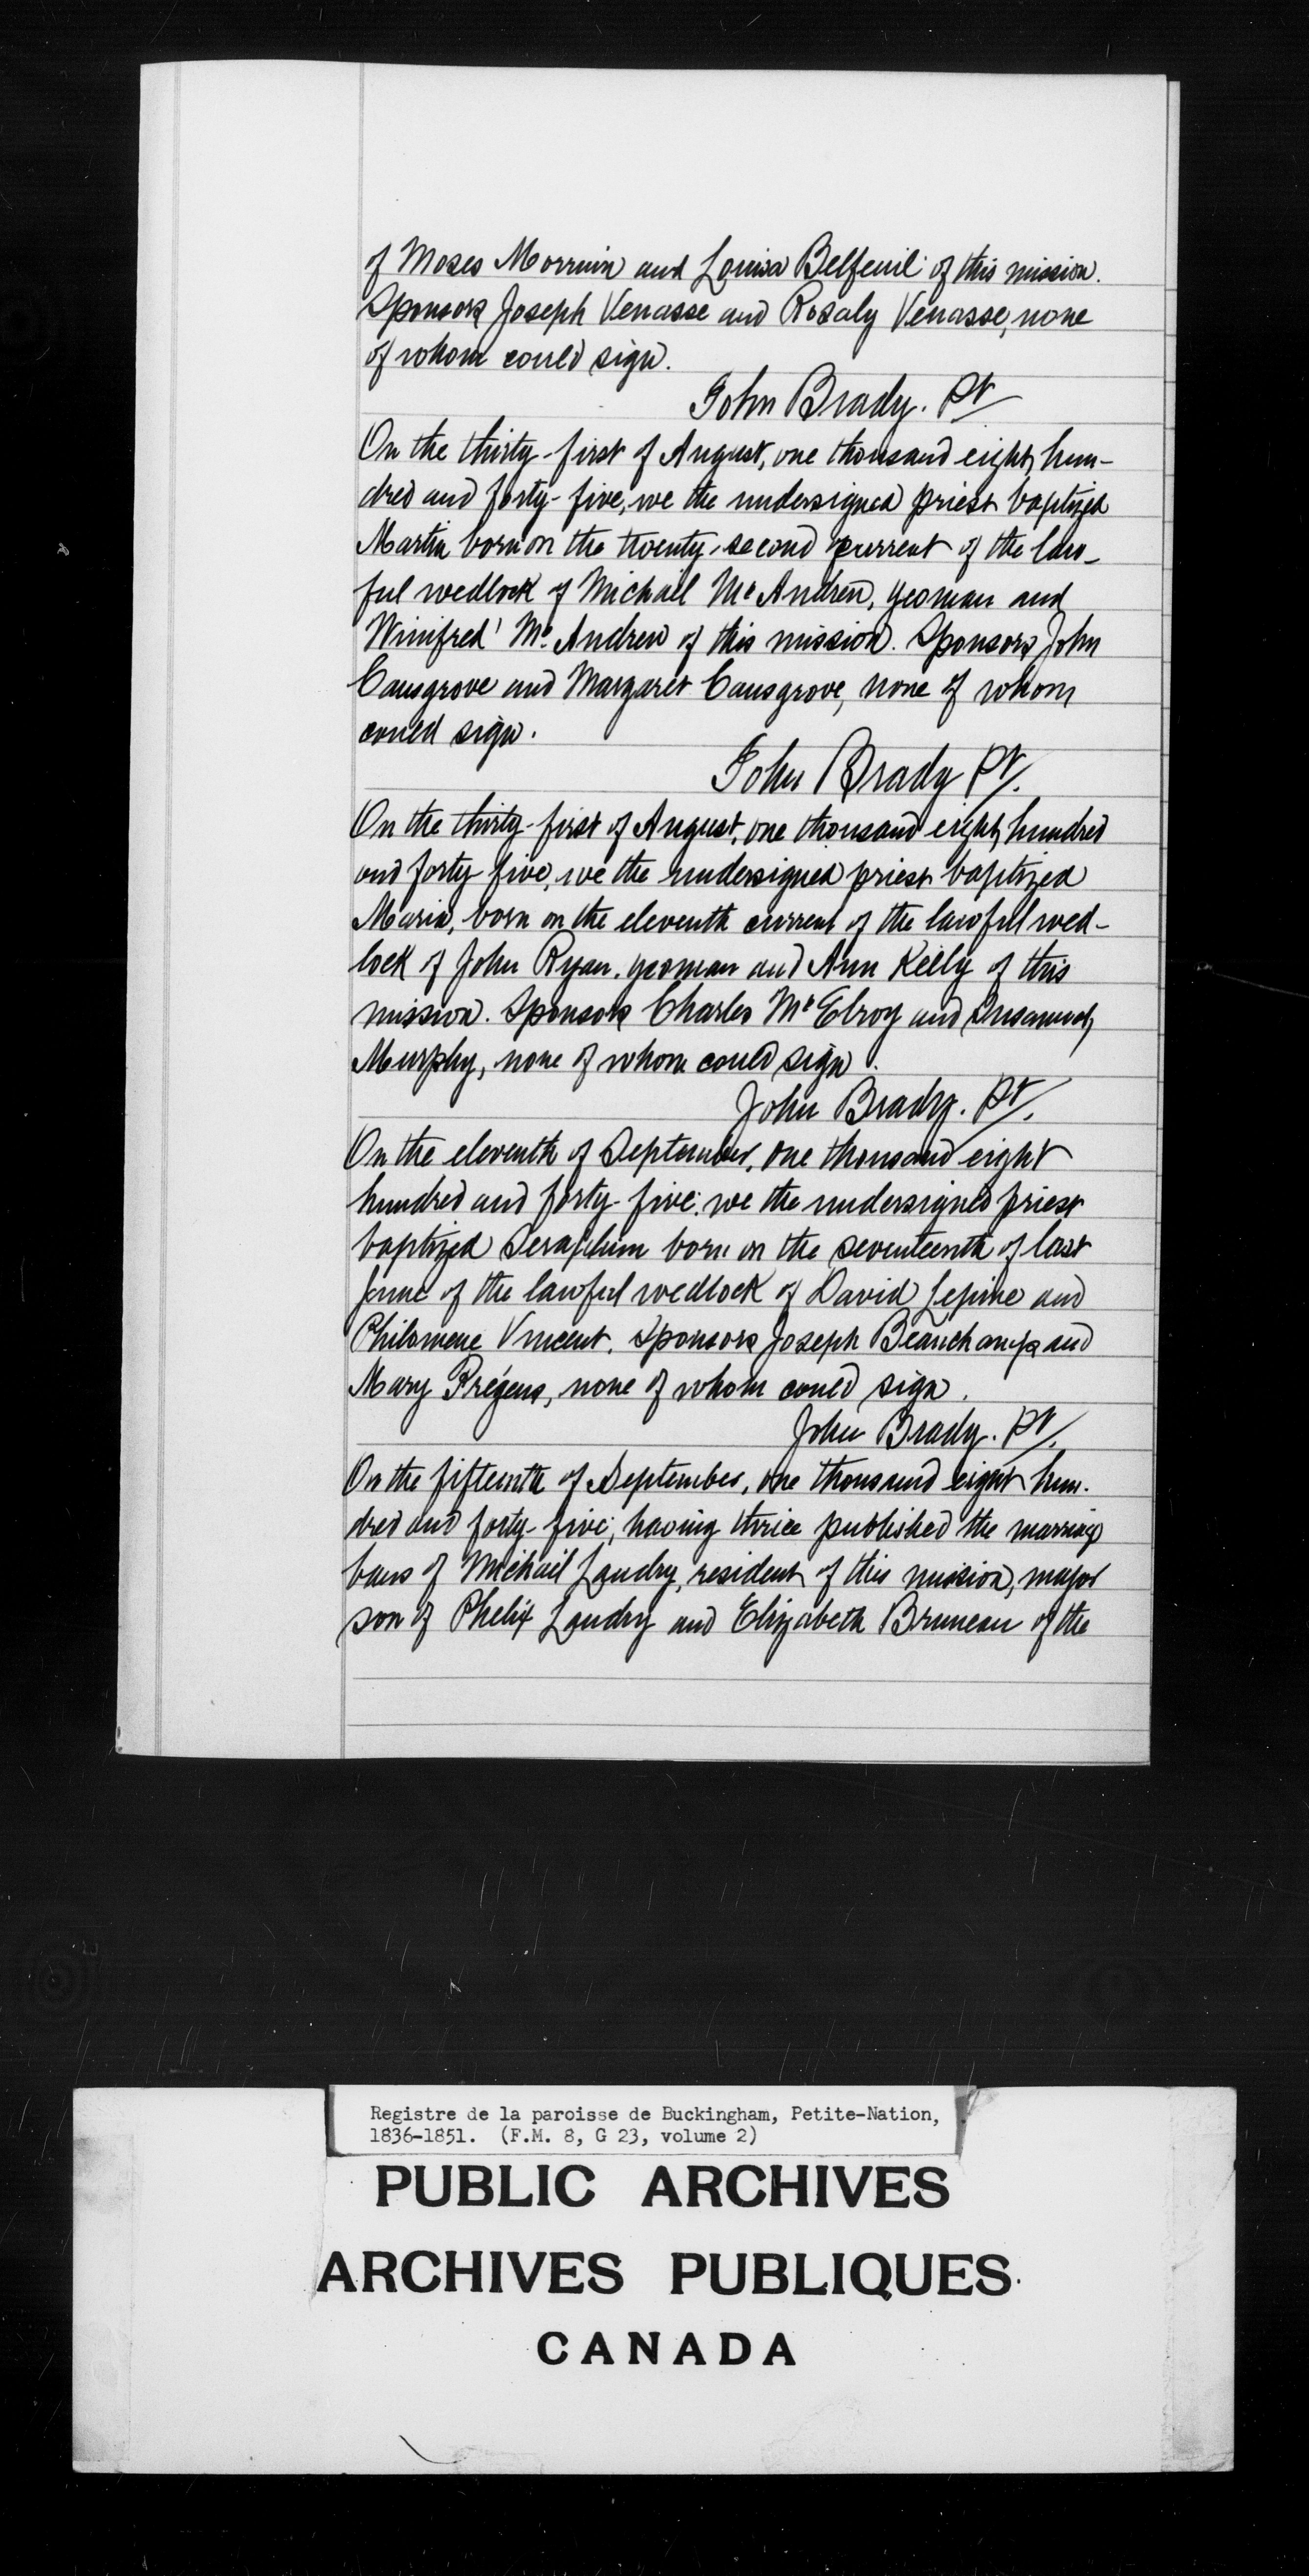 of Moses Morruin and Louisa Belfeuil of this mission.
Sponsors Joseph Venasse and Rosaly Venasse, none
of whom could sign.
John Brady. Pt
On the thirty-first of August, one thousand eight hun-
dred and forty-five, we the undersigned priest baptized
Martin born on the twenty-second current of the law-
ful wedlock of Michael Mc Andrew, yeoman and
Winifred Mc Andrew of this mission. Sponsors John
Causgrove and Margaret Causgrove, none of whom
could sign.
John Brady Pt.
On the thirty-first of August, one thousand eight hundred
and forty five, we the undersigned priest baptized
Maria, born on the eleventh current of the lawful wed-
lock of John Ryan, yeoman and Ann Kelly of this
mission. Sponsors Charles Mc Elroy and
Murphy, none of whom could sign.
John Brady. Pt.
On the eleventh of September, one thousand eight
hundred and forty-five, we the undersigned priest
baptized Seraphim born on the seventeenth of last
June of the lawful wedlock of David Lepine and
Philomene Vincent. Sponsors Joseph Beauchamp and
Mary Prégens, none of whom could sign.
John Brady. Pt.
On the fifteenth of September, one thousand eight hun-
dred and forty-five, having thrice published the marriage
bans of Michail Landry, resident of this mission, major
son of Phelix Landry and Elizabeth Bruneau of the
Registre de la paroisse de Buckingham, Petite-Nation,
1836-1851. (F.M. 8, G 23, volume 2)
PUBLIC ARCHIVES
ARCHIVES PUBLIQUES
CANADA